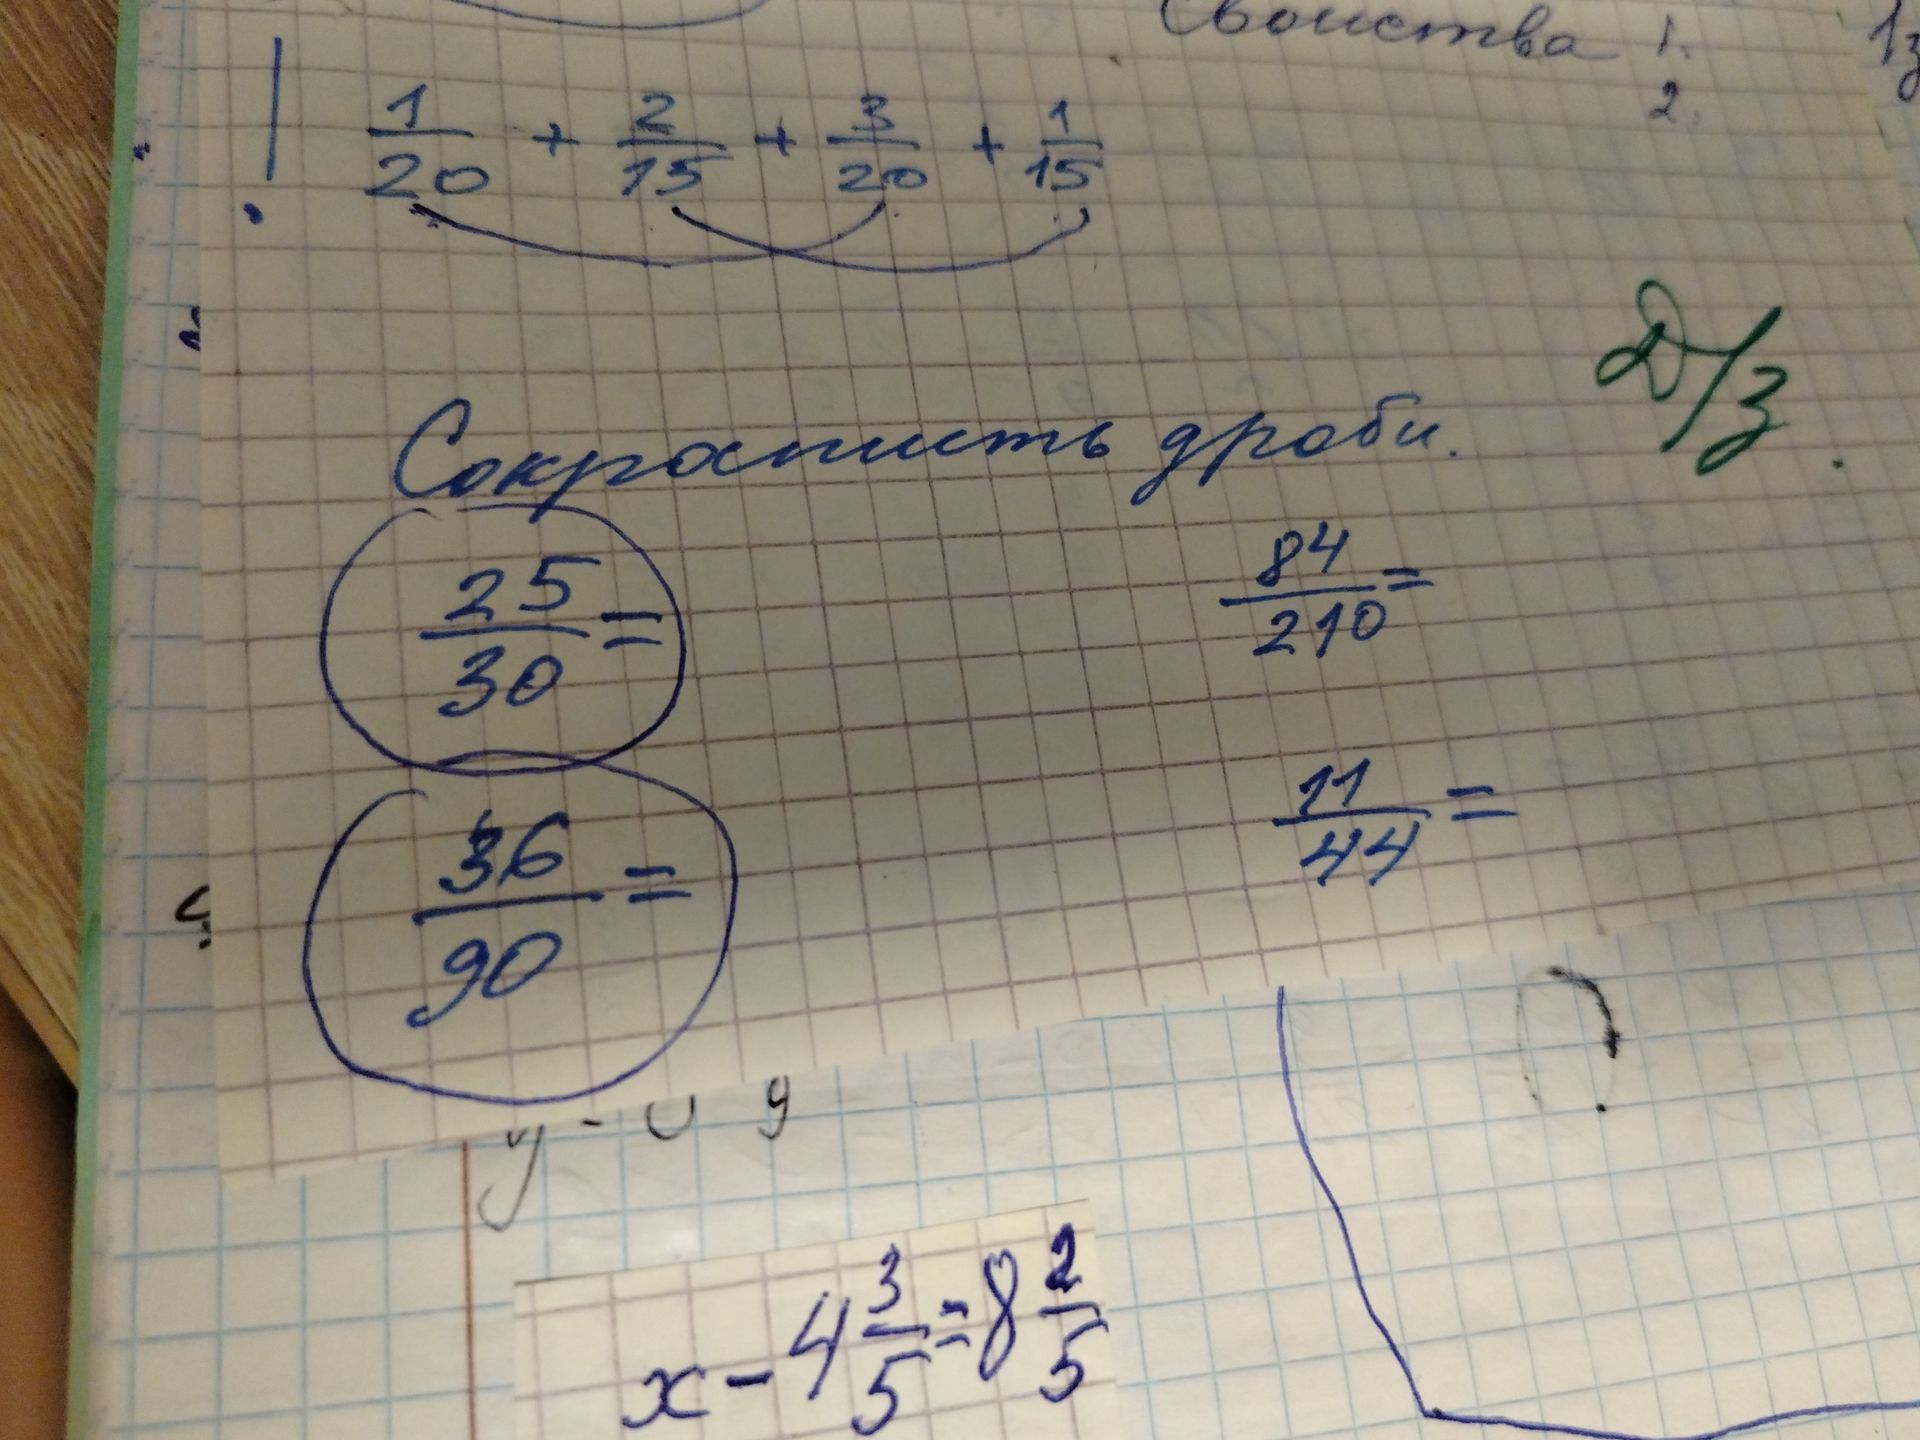 Свойства 1.
2.
! 1/20 + 2/15 + 3/20 + 1/15
Д/з.
Сократить дроби.
25/30 =
84/210 =
36/90 =
11/44 =
x - 4 3/5 = 8 2/5